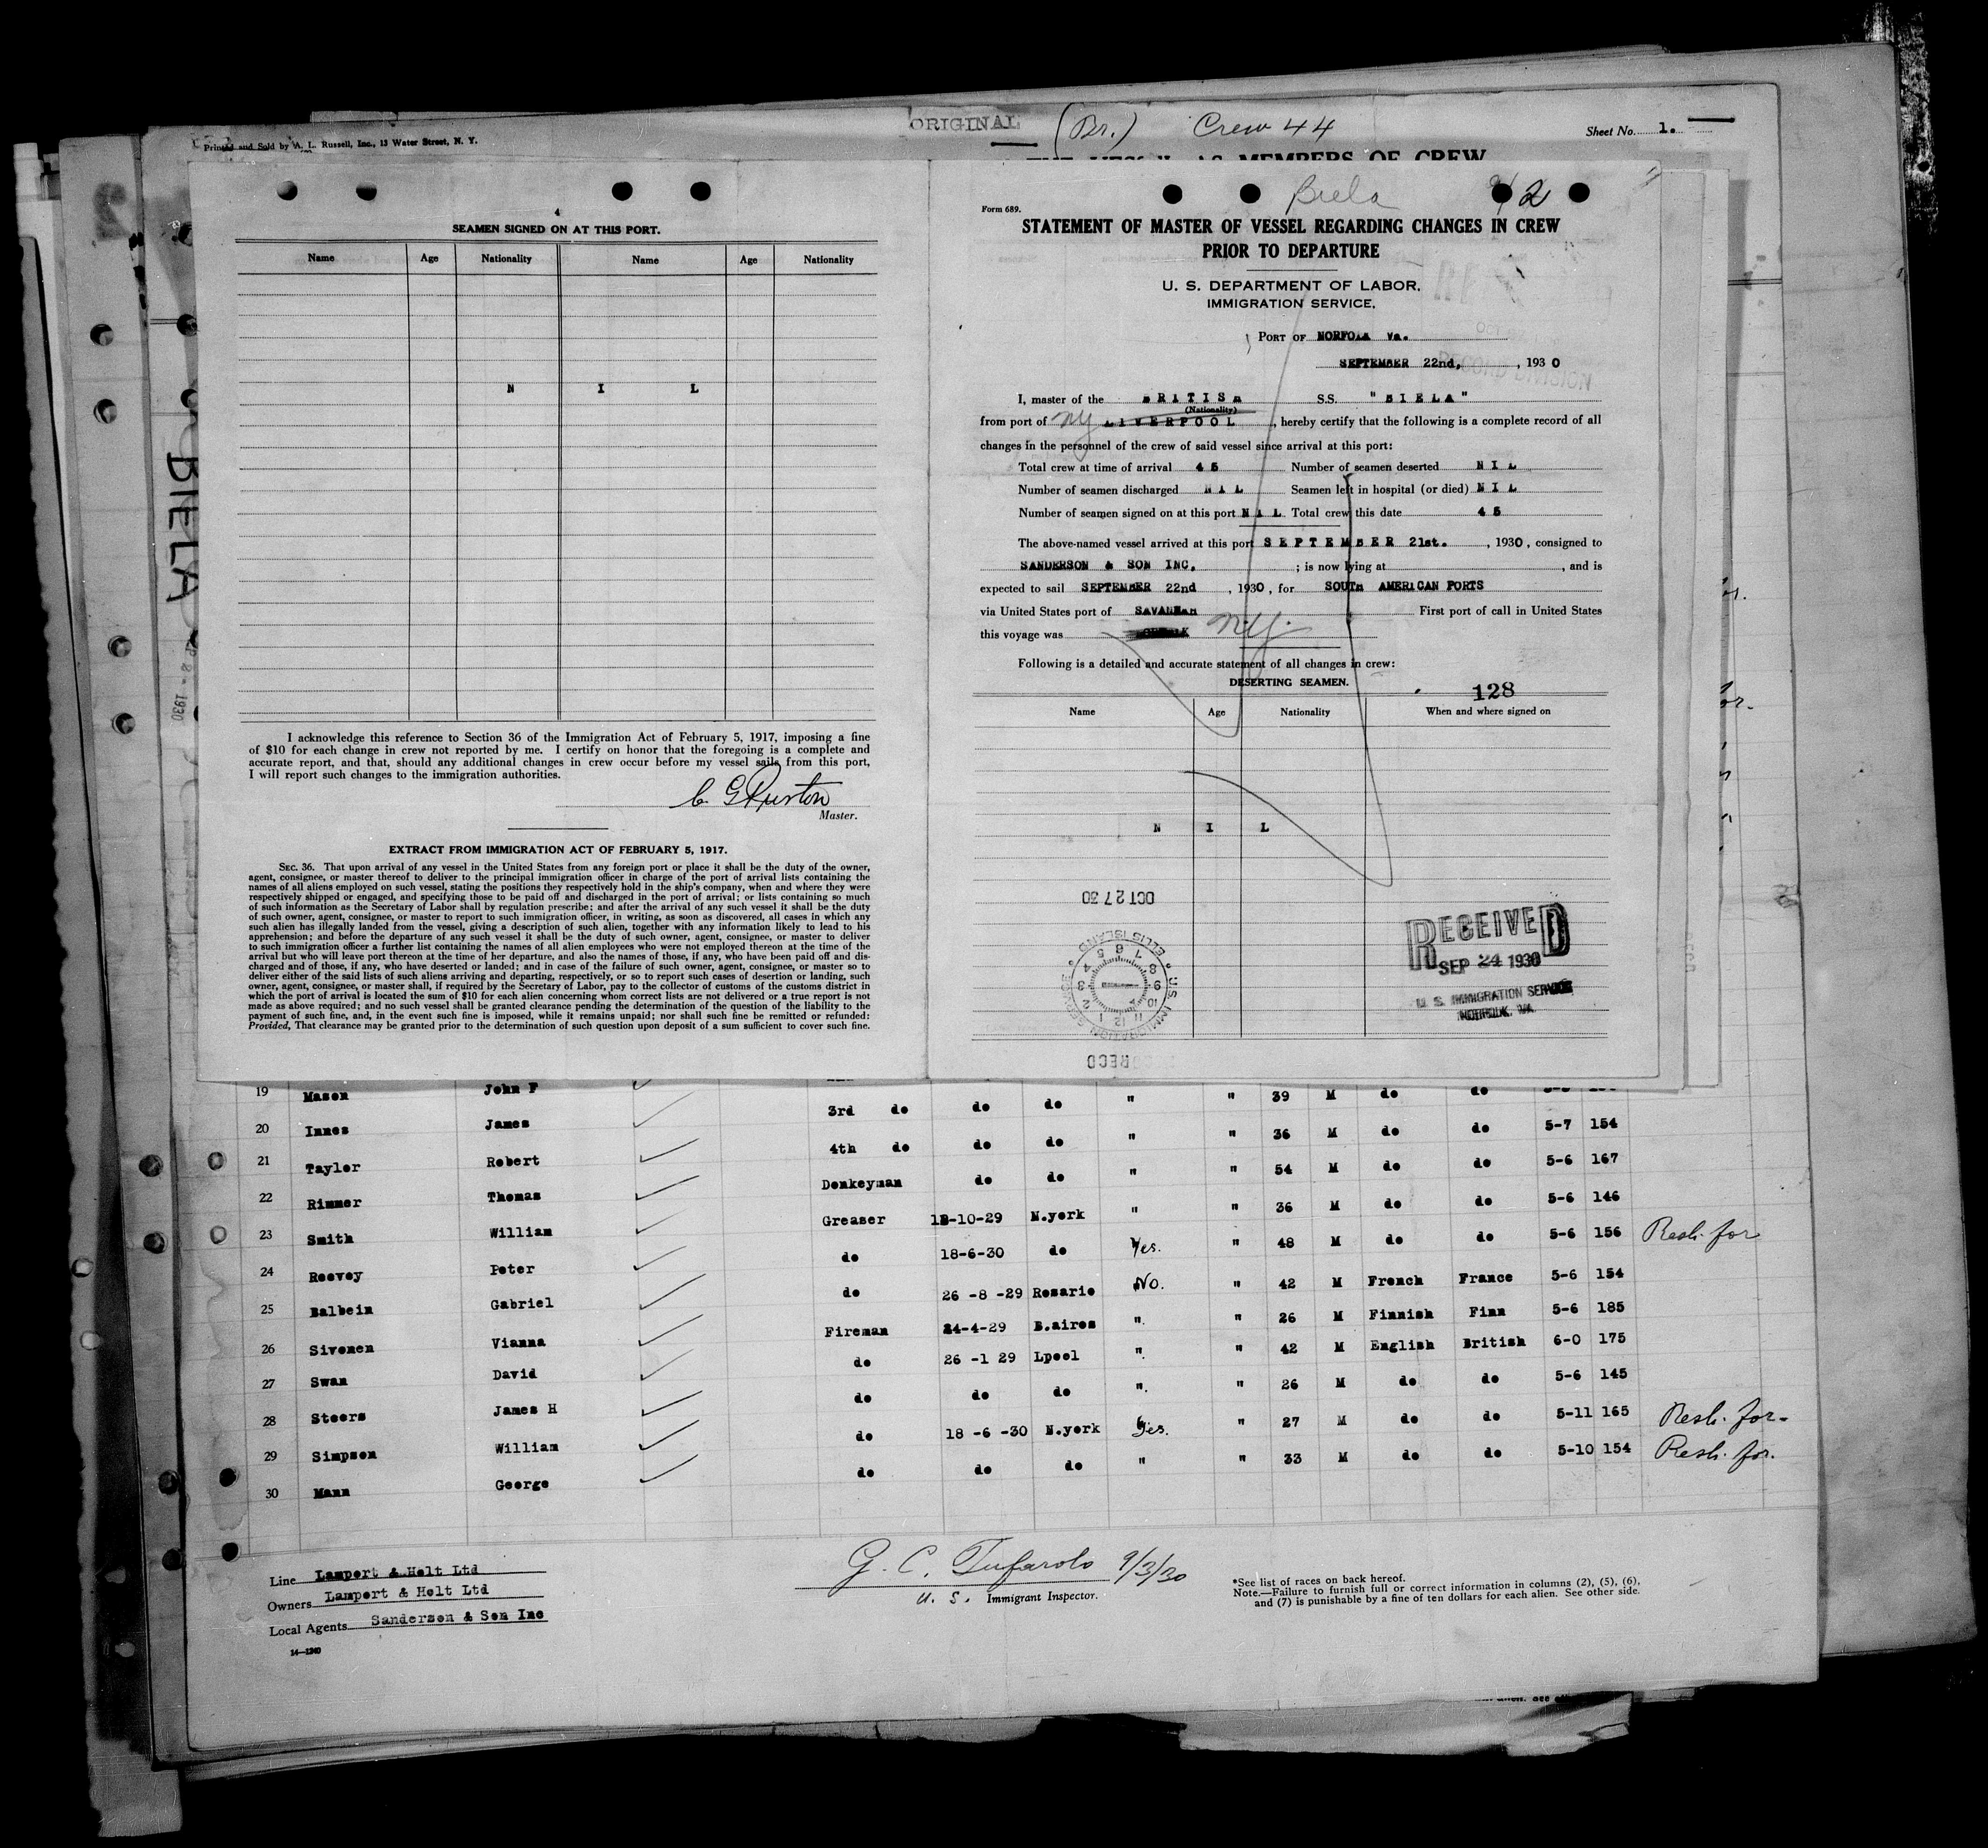 ORIGINAL (Br.) Crew 44
Printed and Sold by A. L. Russell, Inc., 13 Water Street, N. Y.
Sheet No. 1.
MEMBERS OF CREW
BIELA
4
SEAMEN SIGNED ON AT THIS PORT.
Name Age Nationality Name Age Nationality
N I L
I acknowledge this reference to Section 36 of the Immigration Act of February 5, 1917, imposing a fine
of $10 for each change in crew not reported by me. I certify on honor that the foregoing is a complete and
accurate report, and that, should any additional changes in crew occur before my vessel sails from this port,
I will report such changes to the immigration authorities.
C. G. Ruston
Master.
EXTRACT FROM IMMIGRATION ACT OF FEBRUARY 5, 1917.
SEC. 36. That upon arrival of any vessel in the United States from any foreign port or place it shall be the duty of the owner,
agent, consignee, or master thereof to deliver to the principal immigration officer in charge of the port of arrival lists containing the
names of all aliens employed on such vessel, stating the positions they respectively hold in the ship's company, when and where they were
respectively shipped or engaged, and specifying those to be paid off and discharged in the port of arrival; or lists containing so much
of such information as the Secretary of Labor shall by regulation prescribe; and after the arrival of any such vessel it shall be the duty
of such owner, agent, consignee, or master to report to such immigration officer, in writing, as soon as discovered, all cases in which any
such alien has illegally landed from the vessel, giving a description of such alien, together with any information likely to lead to his
apprehension; and before the departure of any such vessel it shall be the duty of such owner, agent, consignee, or master to deliver
to such immigration officer a further list containing the names of all alien employees who were not employed thereon at the time of the
arrival but who will leave port thereon at the time of her departure, and also the names of those, if any, who have been paid off and dis-
charged and of those, if any, who have deserted or landed; and in case of the failure of such owner, agent, consignee, or master so to
deliver either of the said lists of such aliens arriving and departing, respectively, or so to report such cases of desertion or landing, such
owner, agent, consignee, or master shall, if required by the Secretary of Labor, pay to the collector of customs of the customs district in
which the port of arrival is located the sum of $10 for each alien concerning whom correct lists are not delivered or a true report is not
made as above required; and no such vessel shall be granted clearance pending the determination of the question of the liability to the
payment of such fine, and, in the event such fine is imposed, while it remains unpaid; nor shall such fine be remitted or refunded:
Provided, That clearance may be granted prior to the determination of such question upon deposit of a sum sufficient to cover such fine.
Biela 2
Form 689.
STATEMENT OF MASTER OF VESSEL REGARDING CHANGES IN CREW
PRIOR TO DEPARTURE
U. S. DEPARTMENT OF LABOR,
IMMIGRATION SERVICE,
PORT OF NORFOLK Va.
SEPTEMBER 22nd, , 1930
I, master of the BRITISH S.S. "BIELA"
(Nationality)
from port of NY LIVERPOOL , hereby certify that the following is a complete record of all
changes in the personnel of the crew of said vessel since arrival at this port:
Total crew at time of arrival 45 Number of seamen deserted NIL
Number of seamen discharged NIL Seamen left in hospital (or died) NIL
Number of seamen signed on at this port NIL Total crew this date 45
The above-named vessel arrived at this port SEPTEMBER 21st. , 1930, consigned to
SANDERSON & SON INC. ; is now lying at , and is
expected to sail SEPTEMBER 22nd , 1930, for SOUTH AMERICAN PORTS
via United States port of SAVANNAH First port of call in United States
this voyage was NORFOLK N.Y.
Following is a detailed and accurate statement of all changes in crew:
DESERTING SEAMEN.
128
Name Age Nationality When and where signed on
N I L
OCT 27 30
U.S. IMMIGRATION SERVICE ELLIS ISLAND
RECD
RECEIVED
SEP 24 1930
U. S. IMMIGRATION SERVICE
NORFOLK, VA.
19 Mason John F 3rd do do do " " 39 M do do
20 Innes James 4th do do do " " 36 M do do 5-7 154
21 Tayler Robert Donkeyman do do " " 54 M do do 5-6 167
22 Rimmer Thomas Greaser 12-10-29 N.york " " 36 M do do 5-6 146
23 Smith William do 18-6-30 do Yes. " 48 M do do 5-6 156 Resh. for
24 Reevey Peter do 26-8-29 Rosario No. " 42 M French France 5-6 154
25 Balbein Gabriel Fireman 24-4-29 B.aires " " 26 M Finnish Finn 5-6 185
26 Sivonen Vianna do 26-1 29 Lpool " " 42 M English British 6-0 175
27 Swan David do do do " " 26 M do do 5-6 145
28 Steers James H do 18-6-30 N.york Yes. " 27 M do do 5-11 165 Resh. for.
29 Simpson William do do do " " 33 M do do 5-10 154 Resh. for.
30 Mann George
Line Lampert & Holt Ltd
Owners Lampert & Holt Ltd
Local Agents Sanderson & Son Inc
14—1240
G. C. Tufarolo 9/3/30
U. S. Immigrant Inspector.
*See list of races on back hereof.
Note.—Failure to furnish full or correct information in columns (2), (5), (6),
and (7) is punishable by a fine of ten dollars for each alien. See other side.